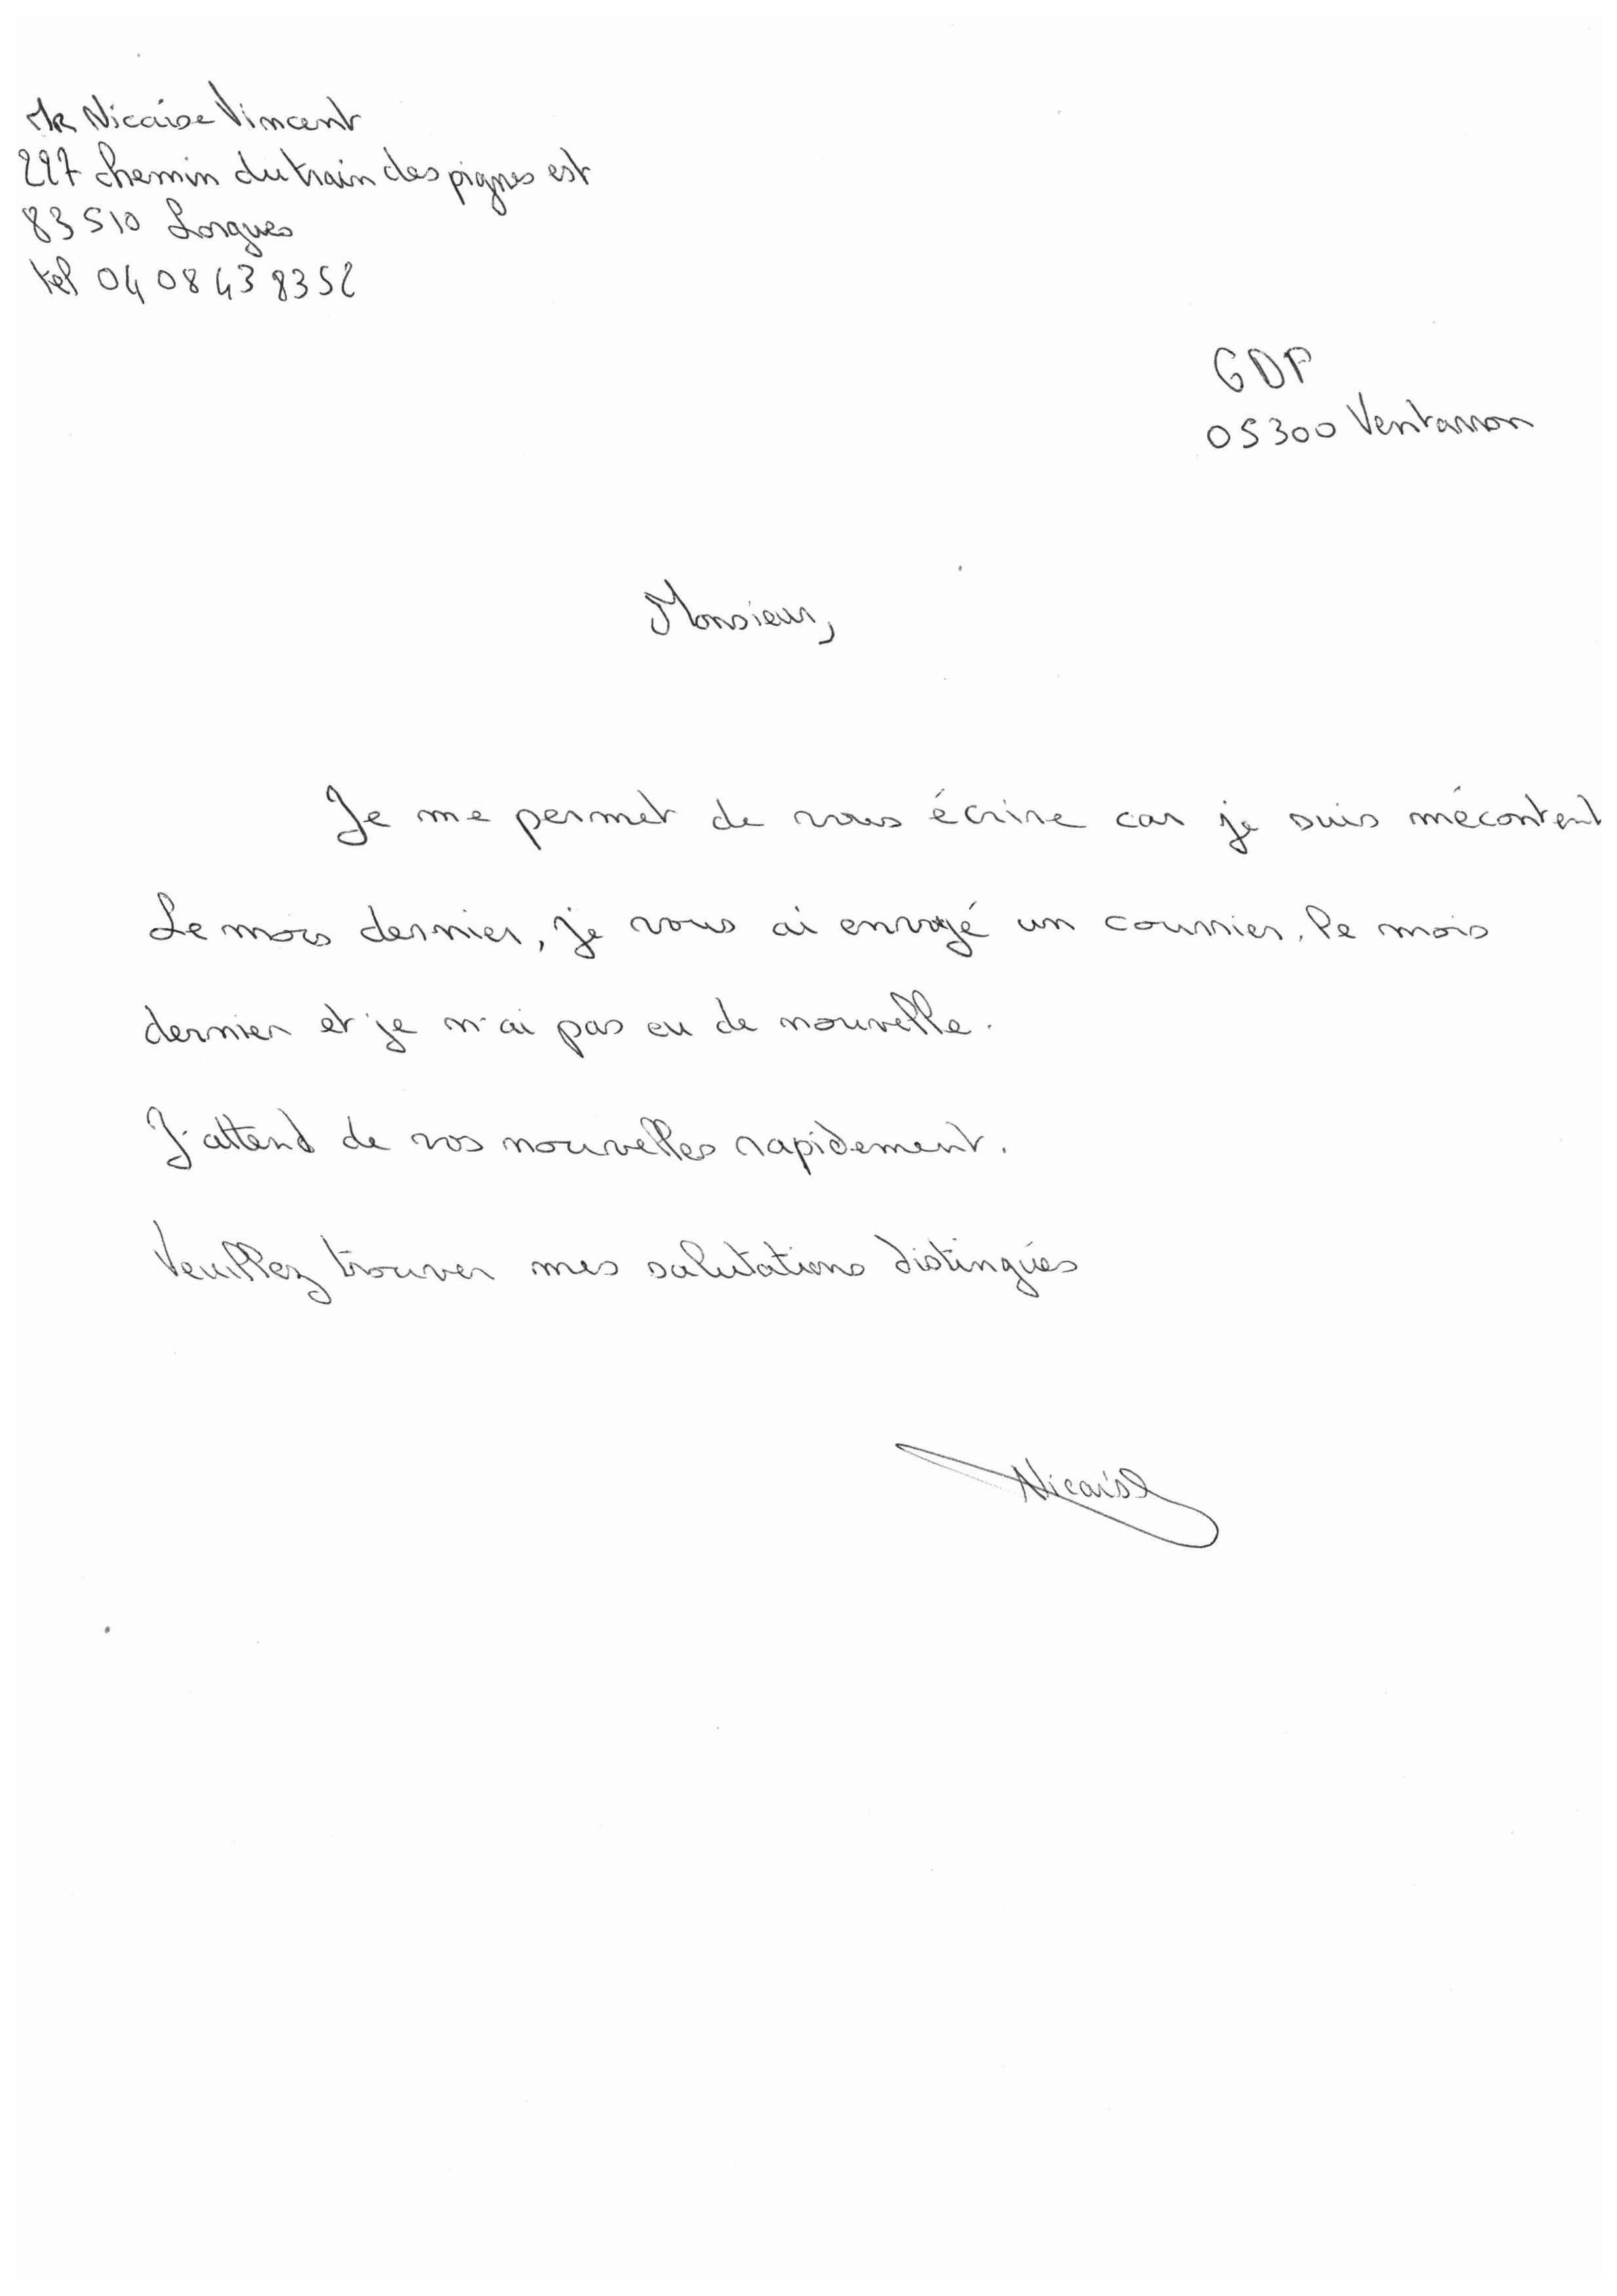 Mr Nicaise Vincent
227 chemin du train des pignes est
83510 Lorgues
tel 04 08 43 83 52
GDP
05300 Ventavon
Monsieur,
Je me permet de vous écrire car je suis mécontent
Le mois dernier, je vous ai envoyé un courrier. le mois
dernier et je n'ai pas eu de nouvelle.
J'attend de vos nouvelles rapidement.
Veuillez trouver mes salutations distingués
Nicaise